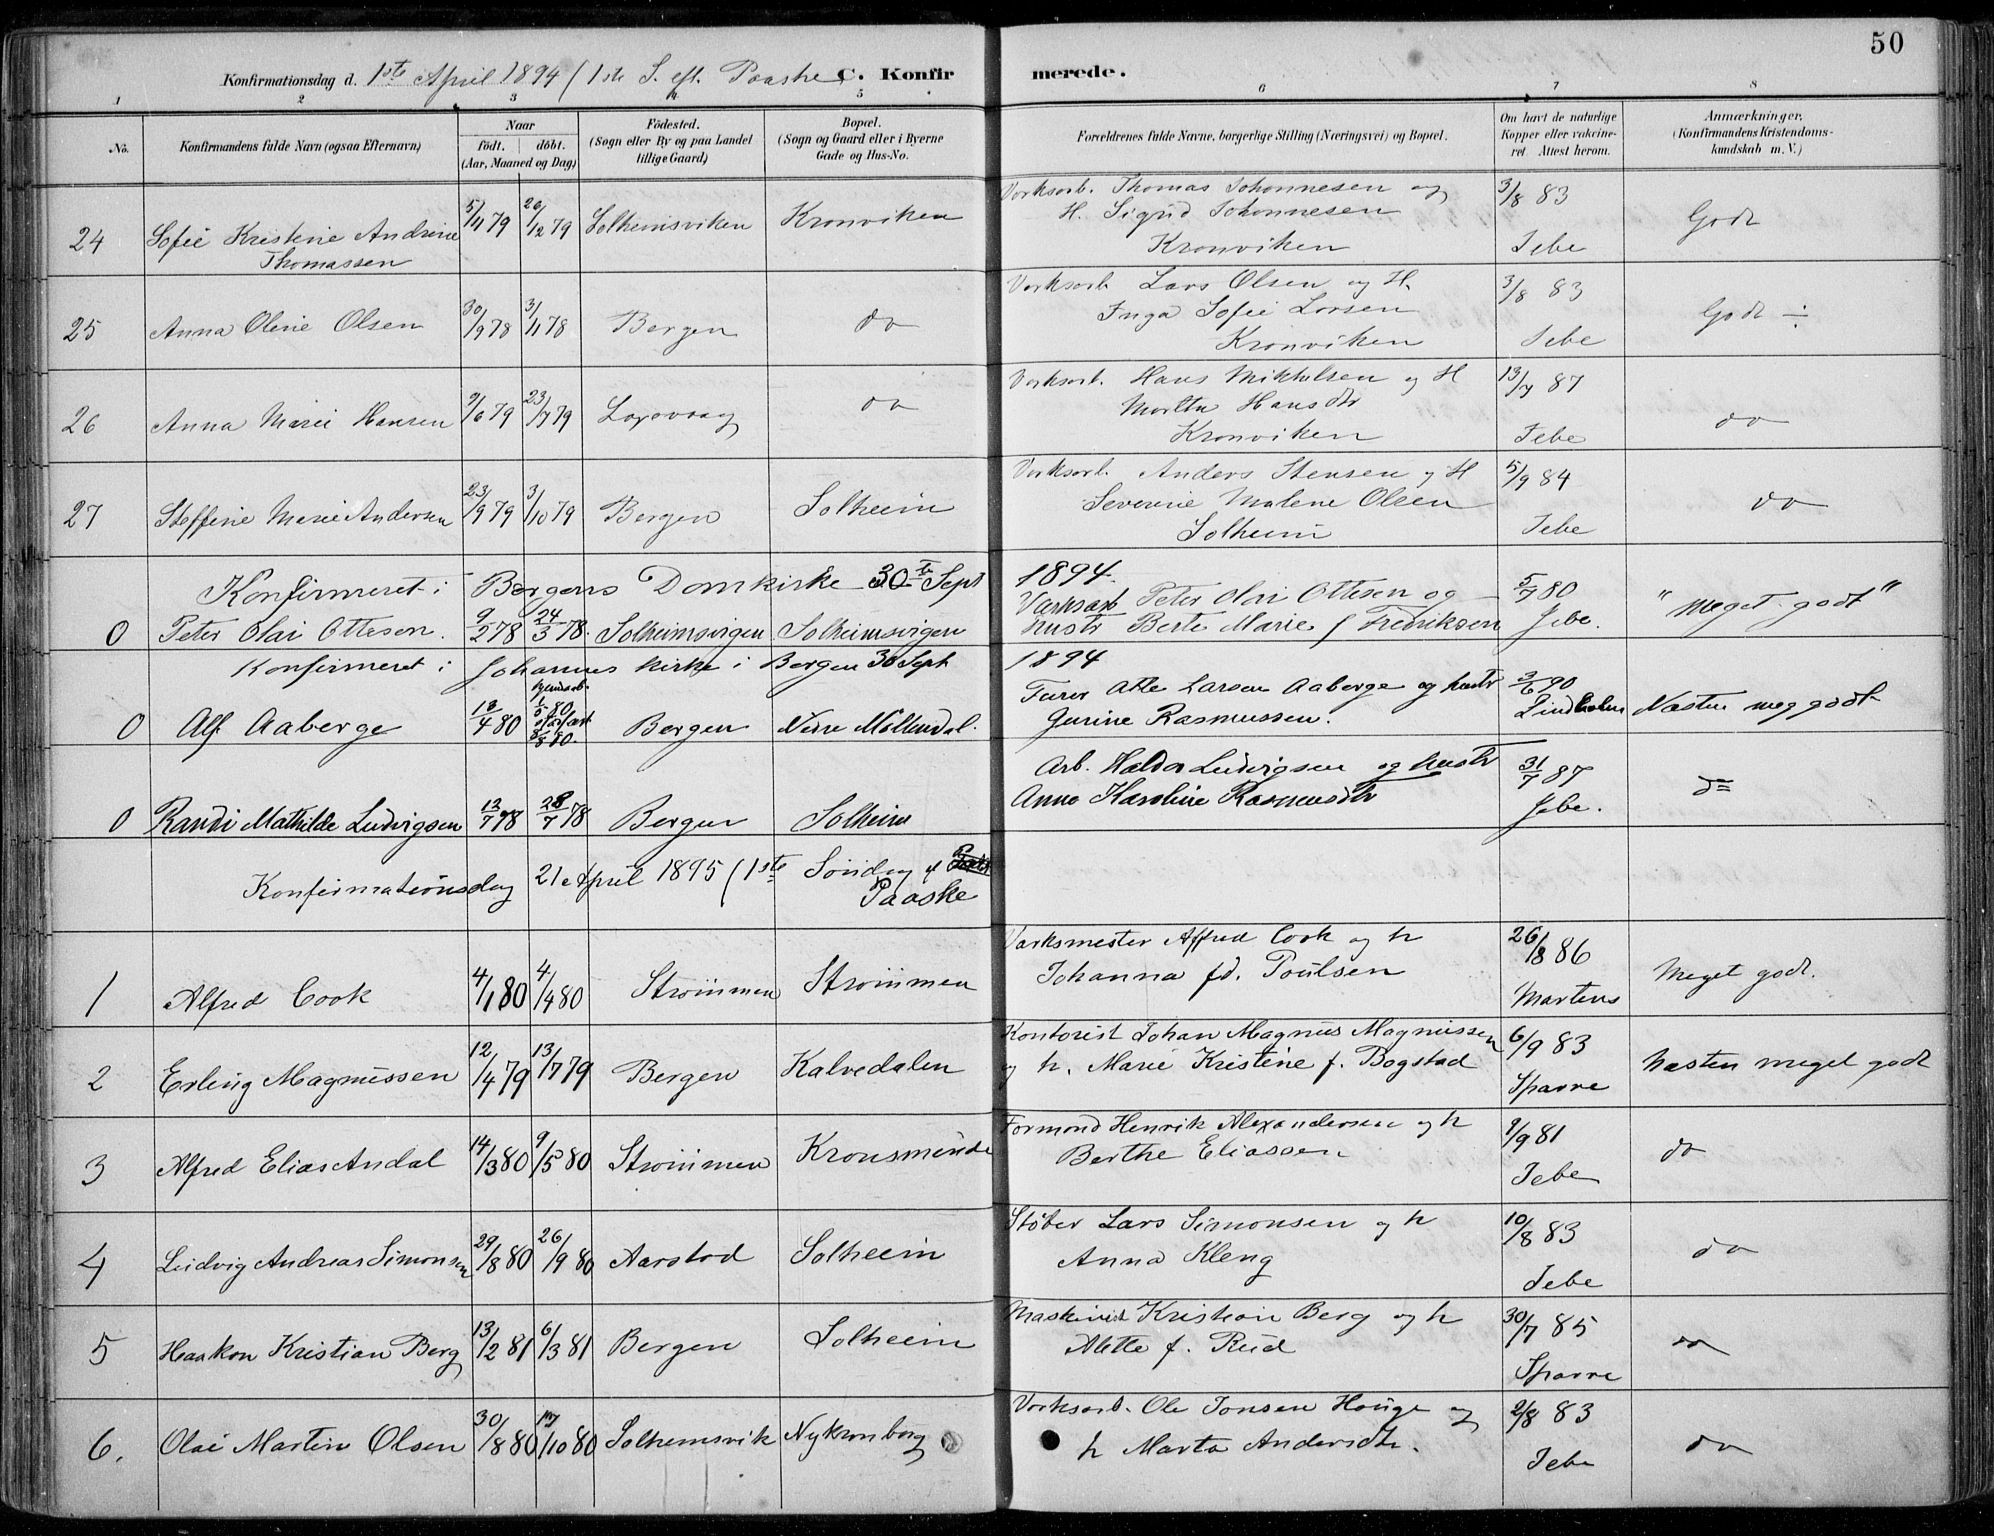 50
Konfirmationsdag d. 1ste April 1894 (1ste S. eft. Paaske) C. Konfirmerede.
1 2 3 4 5 6 7 8
No. Konfirmandens fulde Navn (ogsaa Efternavn) Naar født. døbt. (Aar, Maaned og Dag) Fødested. (Sogn eller By og paa Landet tillige Gaard) Bopæl. (Sogn og Gaard eller i Byerne Gade og Hus-No. Forældrenes fulde Navne, borgerlige Stilling (Næringsvei) og Bopæl. Om havt de naturlige Kopper eller vaccineret. Attest herom. Anmærkninger. (Konfirmandens Kristendomskundskab m. V.)
24 Sofie Kristine Andrine Thomassen 5/11 79 26/12 79 Solheimsviken Kronviken Værksarb. Thomas Johannesen og H. Sigrid Johannesen Kronviken 3/8 83 Jebe Godt
25 Anna Oline Olsen 30/9 78 3/11 78 Bergen do Værksarb. Lars Olsen og H. Inga Sofie Larsen Kronviken 3/8 83 Jebe Godt ÷
26 Anna Marie Hansen 9/6 79 23/7 79 Laxevaag do Værksarb. Hans Mikkelsen og H Martha Hansdtr Kronviken 13/7 87 Jebe do
27 Steffine Marie Andersen 23/9 79 3/10 79 Bergen Solheim Værksarb. Anders Stensen og H Severine Malene Olsen Solheim 5/9 84 Jebe do
Konfirmeret i Bergens Domkirke 30te Sept 1894.
0 Peter Olai Ottesen. 9/2 78 24/3 78. Solheimsvigen Solheimsvigen Værksarb Peter Olai Ottesen og hustr Berte Marie f Fredriksen 5/7 80 Jebe. "Meget godt"
Konfirmeret i Johannes kirke i Bergen 30 Sept 1894
0 Alf Aaberge 13/4 80 hjemdøb. 1/5 80 8/8 80. Bergen Nedre Møllendal. Atle Larsen Aaberge og hustr Gurine Rasmussen. 3/6 90 Lindholm Næsten meg godt
0 Randi Mathilde Ludvigsen 12/7 78 28/7 78 Bergen Solheim Arb. Haldor Ludvigsen og hustr Anna Karoline Rasmusdtr 31/7 87 Jebe. do
Konfirmationsdag 21 April 1895 (1ste Søndag ef Paaske
1 Alfred Cook 4/1 80 4/4 80 Strømmen Strømmen Værksmester Alfred Cook og h Johanna fd. Poulsen 26/8 86 Martens Meget godt.
2 Erling Magnussen 12/4 79 13/7 79 Bergen Kalvedalen Kontorist Johan Magnus Magnussen og h. Marie Kristine f. Bogstad 6/9 83 Sparre Næsten meget godt
3 Alfred Elias Andal 14/3 80 9/5 80 Strømmen Kronsminde Formand Henrik Alexandersen og h Berthe Eliassen 1/9 81 Jebe do
4 Ludvig Andreas Simonsen 29/8 80 26/9 80 Aarstad Solheim Støber Lars Simonsen og h Anna Kleng 10/8 83 Jebe do
5 Haakon Kristian Berg 13/2 81 6/3 81 Bergen Solheim Maskinist Kristian Berg og h Alette f. Rud 30/7 85 Sparre do
6. Olai Martin Olsen 30/8 80 17/10 80 Solheimsvik Nykronborg Værksarb. Ole Jonsen Houge og h Marta Andersdtr. 2/8 83 Jebe do